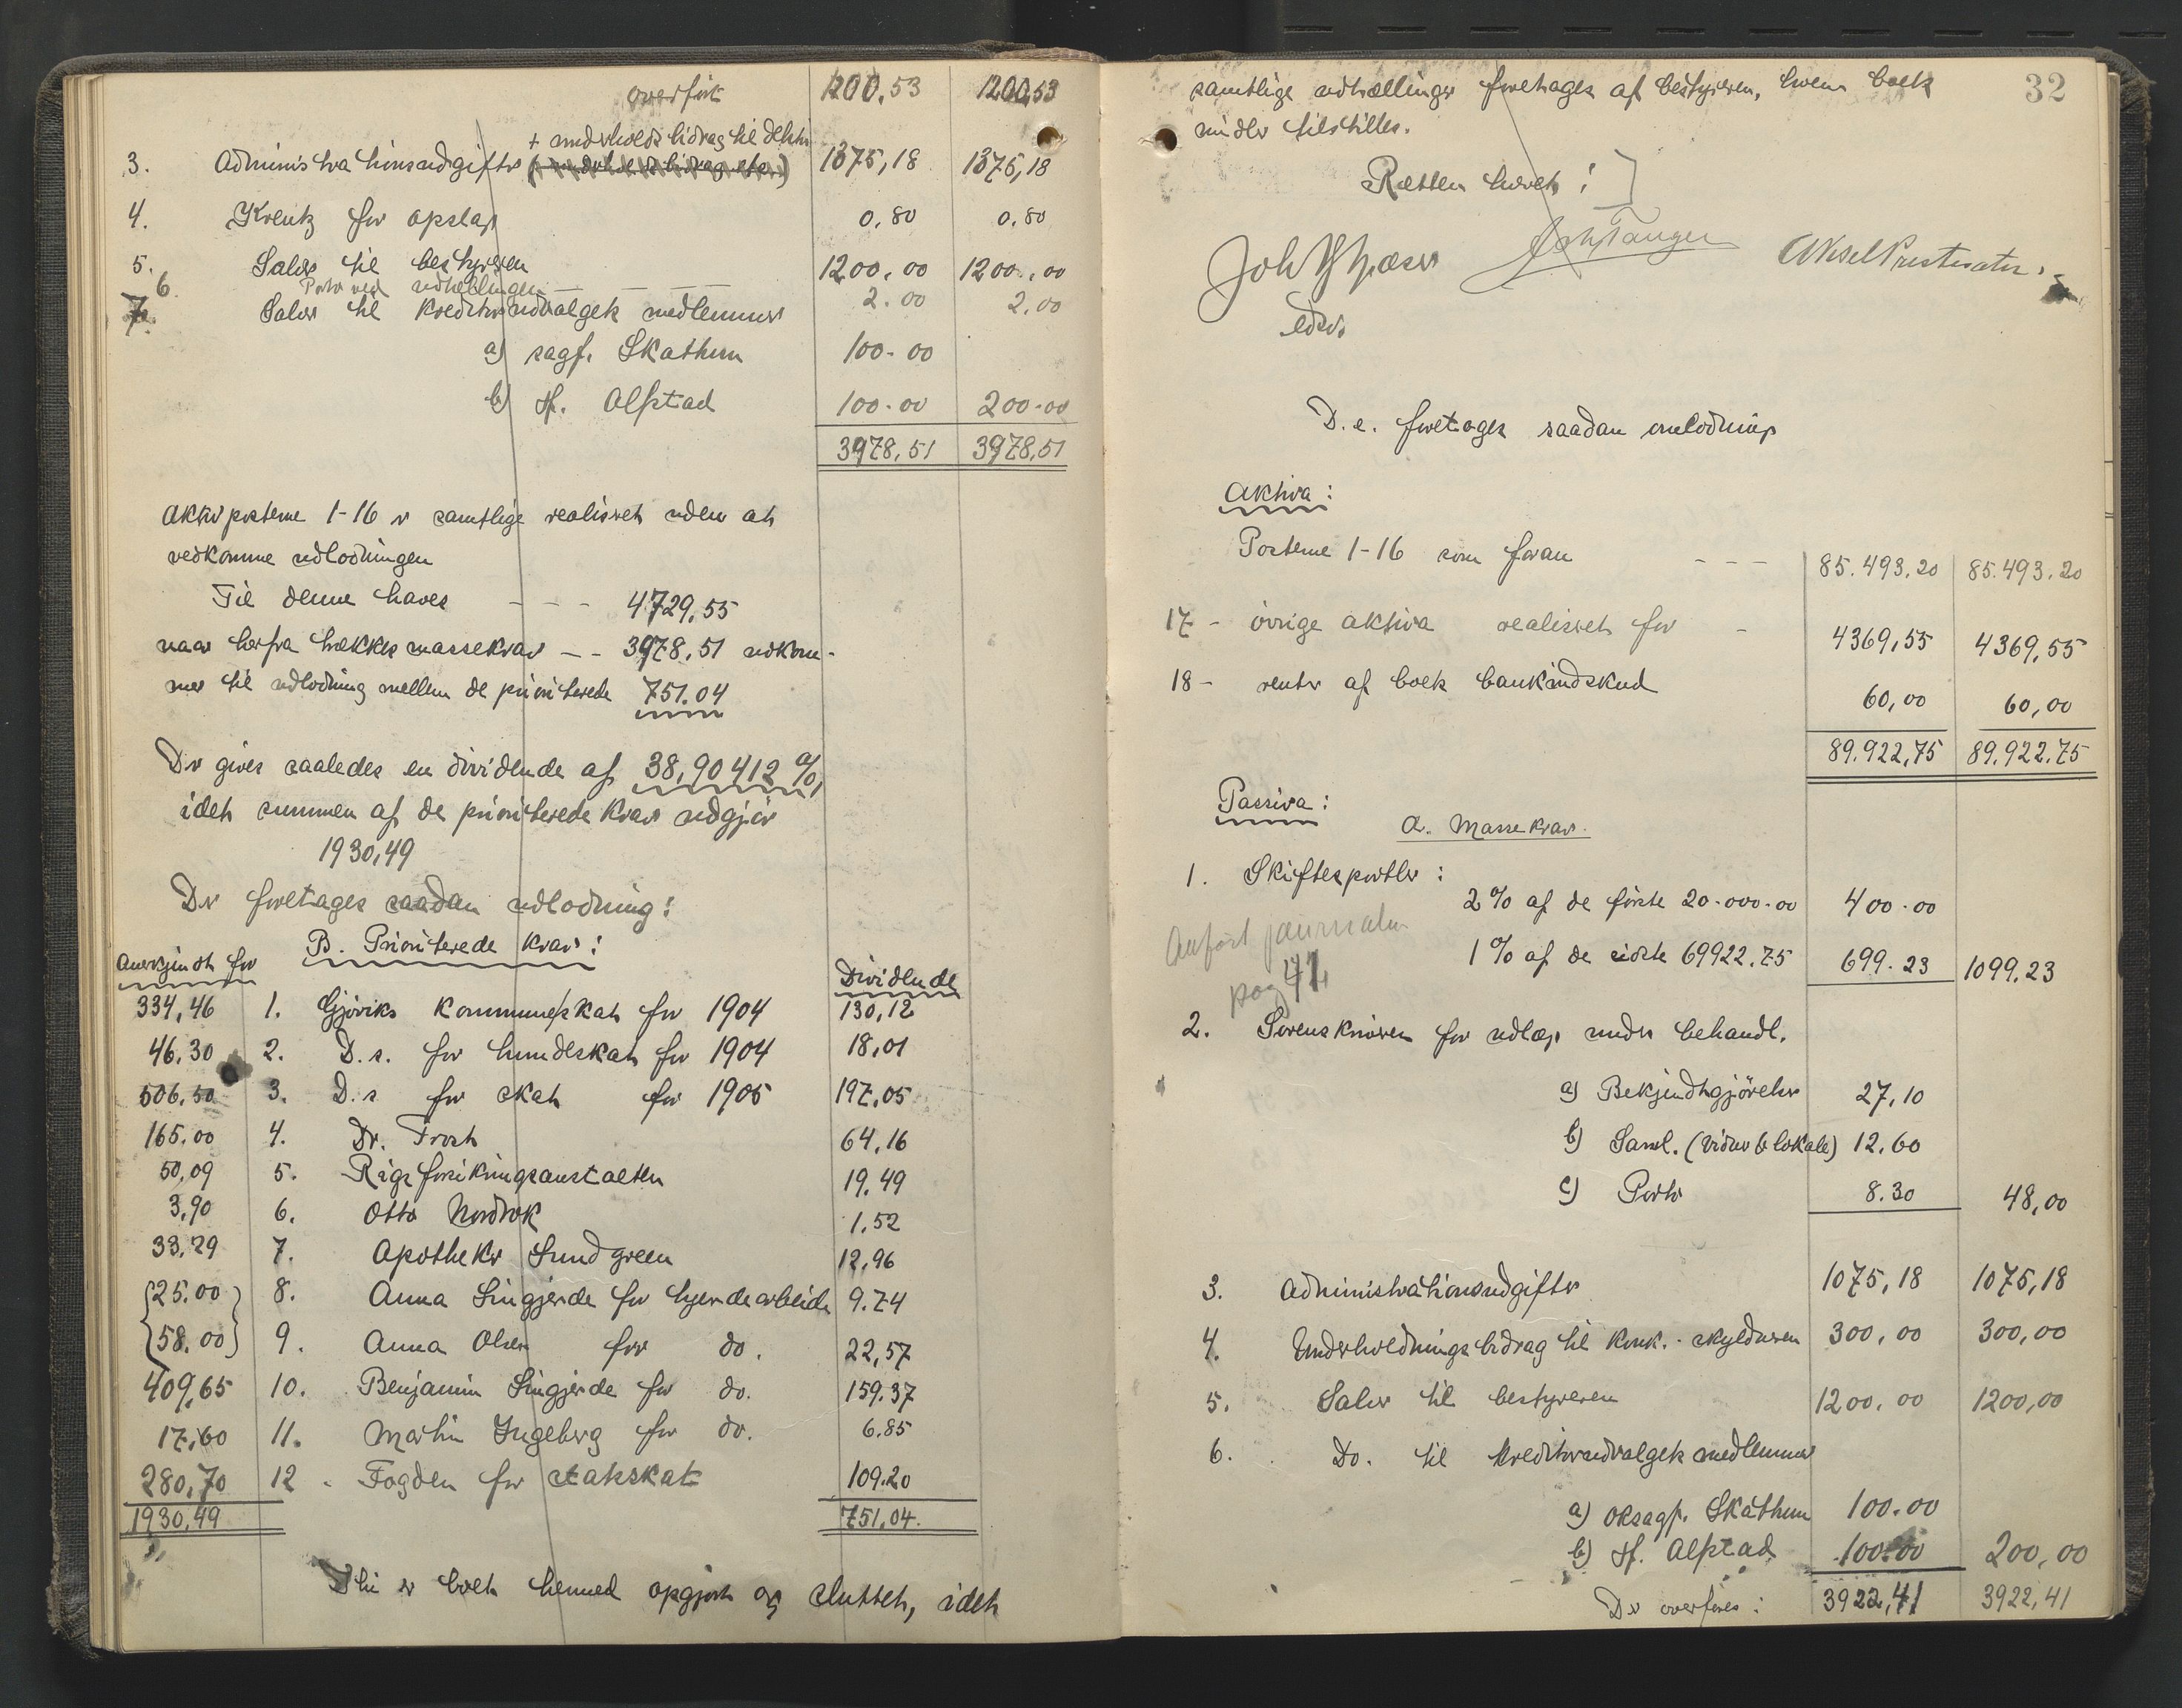 overført 1200,53 1200,53
+ underholdsbidrag til debitor
3. Administrationsudgifter (underholdsbidrag etc.) 1375,18 1375,18
4. Kreutz for opslag 0,80 0,80
5. Salær til bestyreren 1200,00 1200,00
6. Porto ved udhællingen — — — 2.00 2,00
7. Salær til kreditorudvalgets medlemmer
a) sagf. Skathum 100-00
b) sf. Alfstad 100-00 200-00
3978,51 3978,51
Aktivposterne 1-16 er samtlige realiseret uden at
vedkomme udlodningen
Til denne haves - - - 4729,55
naar herfra trækkes massekrav - - 3978,51 udkom-
mer til udlodning mellem de prioriterede 751.04
Der gives saaledes en dividende af 38,90412 %,
idet summen af de prioriterede krav udgjør
1930,49
Der foretages saadan udlodning:
Anerkjendt for B. Prioriterede krav: Dividende
334,46 1. Gjøviks kommuneskat for 1904 130,12
46.30 2. D.s. for hundeskat for 1904 18,01
506,50 3. D.s for skat for 1905 197,05
165,00 4. Dr. Frost 64,16
50,09 5. Rigsforsikringsanstalten 19,49
3,90 6. Otto Nordbok 1,52
33,29 7. Apotheker Lundgreen 12,96
25.00 8. Anna Lingjerde for tjenerarbeide 9.74
58.00 9. Anna Olsen for do. 22,57
409,65 10. Benjamin Lingjerde for do. 159.37
17,60 11. Martin Ingeberg for do. 6.85
280,70 12. Fogden for statsskat 109.20
1930,49 751,04.
Thi er boet hermed opgjort og sluttet, idet
32
samtlige udhællinger foretages af bestyreren, hvem boets
midler tilstilles.
Retten hævet!
Joh Tanger Aksel
edsv.
D.e. foretages saadan omlodning
Aktiva:
Posterne 1-16 som foran - - - 85.493,20 85.493.20
17 - øvrige aktiva realiseret for - 4369,55 4369,55
18 - renter af boets bankindskud 60,00 60,00
89.922,75 89.922.75
Passiva:
A. Massekrav.
1. Skiftesportler:
2 % af de første 20.000.00 400-00
1 % af de sidste 69922.75 699.23 1099,23
Anført journalen
pag 41
2. Sorenskriveren for udlæg under behandl.
a) Bekjendtgjørelser 27,10
b) Saml. (vidner & lokale) 12.60
c) Porto 8.30 48,00
3. Administrationsudgifter 1075,18 1075,18
4. Underholdningsbidrag til konk.-skyldneren 300,00 300,00
5. Salær til bestyreren 1200.00 1200,00
6. Do. til kreditorudvalgets medlemmer
a) oksagf. Skathum 100.00
b) sf. Alfstad 100.00 200,00
Der overføres: 3922,41 3922,41